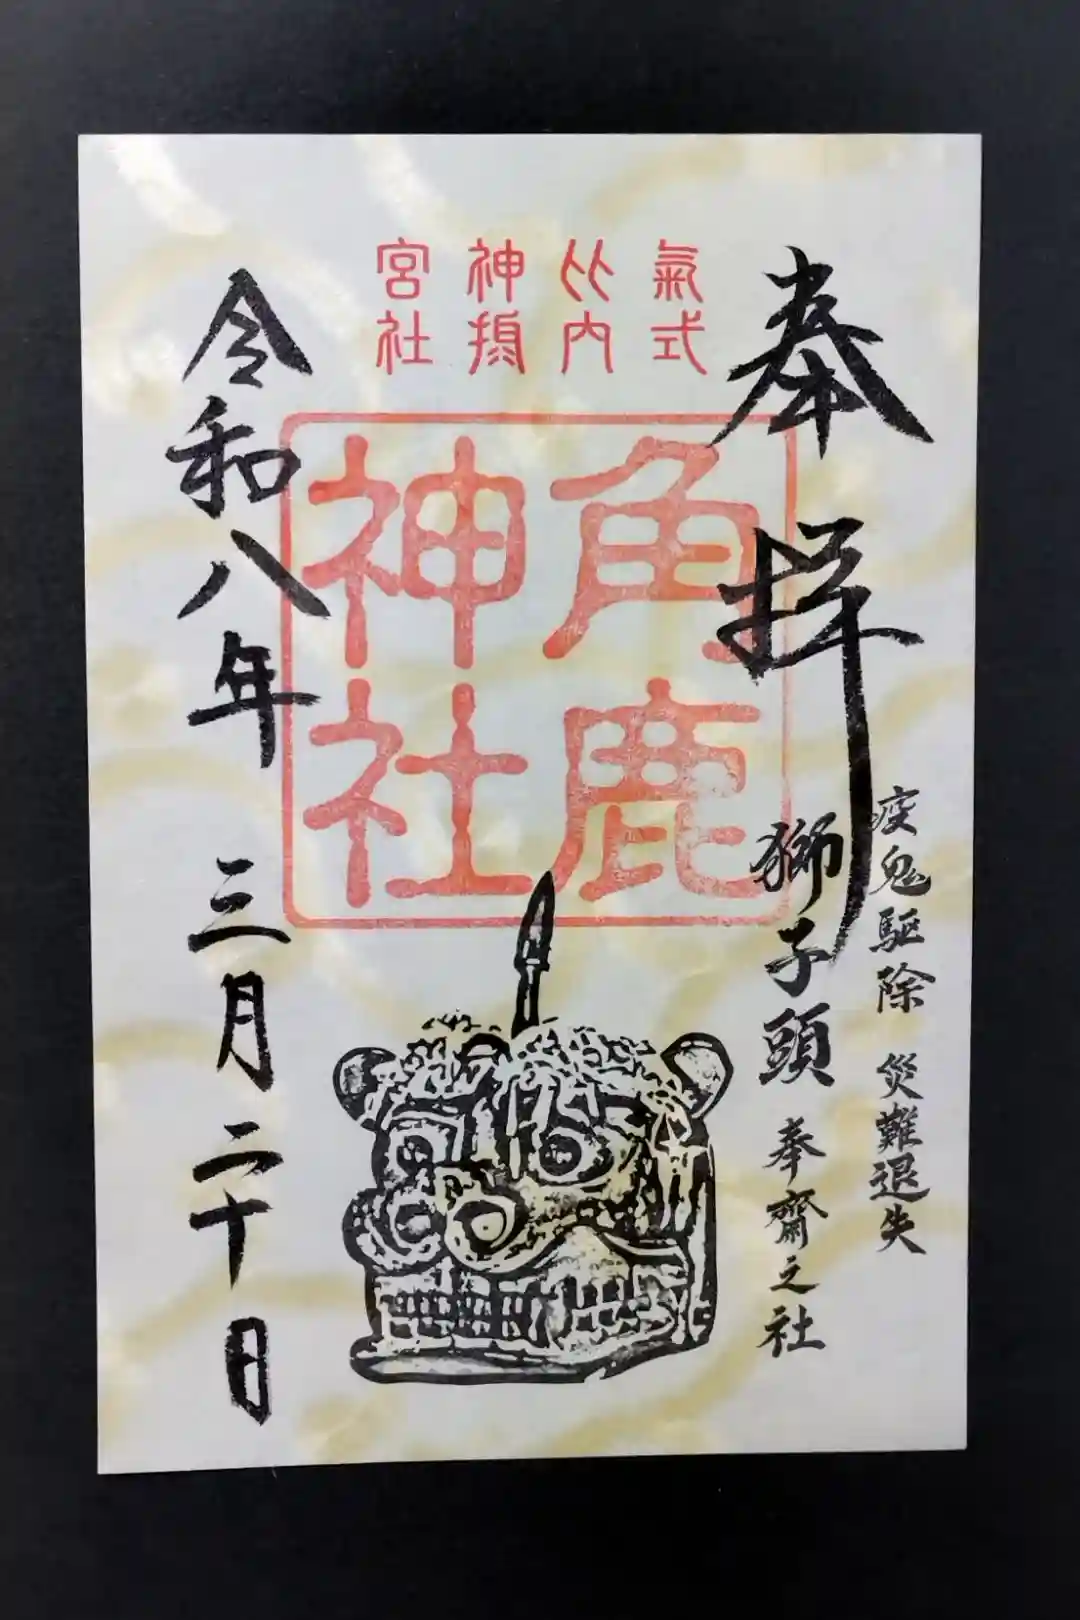 氣比神宮
式内摂社
奉拝
疫鬼駆除 災難退失
獅子頭 奉齋之社
角鹿
神社
令和八年 三月 二十日